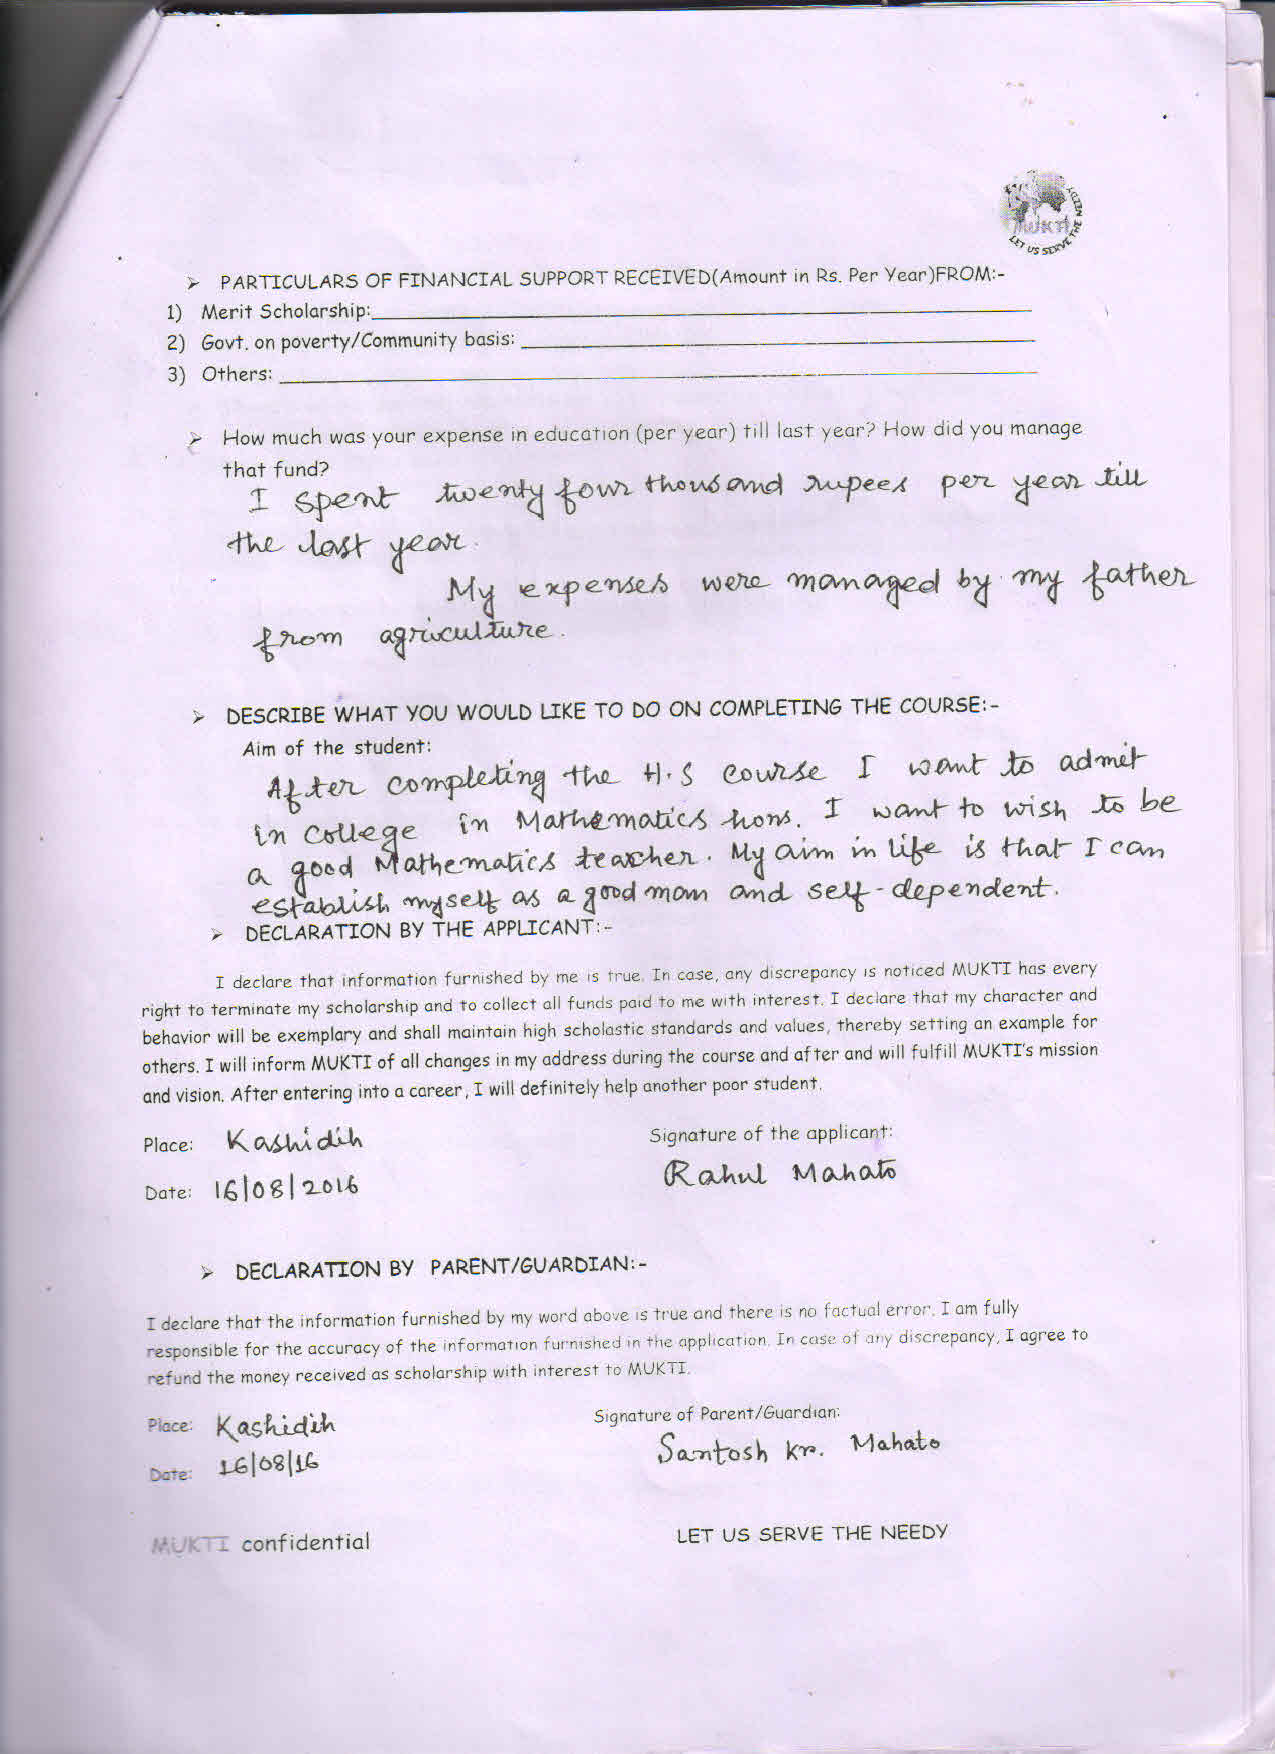 MUKTI
LET US SERVE THE NEEDY
➢ PARTICULARS OF FINANCIAL SUPPORT RECEIVED(Amount in Rs. Per Year)FROM:-
1) Merit Scholarship:
2) Govt. on poverty/Community basis:
3) Others:
➢ How much was your expense in education (per year) till last year? How did you manage
that fund?
I spent twenty four thousand rupees per year till
the last year.
My expenses were managed by my father
from agriculture.
➢ DESCRIBE WHAT YOU WOULD LIKE TO DO ON COMPLETING THE COURSE:-
Aim of the student:
After completing the H.S course I want to admit
in college in Mathematics hons. I want to wish to be
a good Mathematics teacher. My aim in life is that I can
establish myself as a good man and self-dependent.
➢ DECLARATION BY THE APPLICANT:-
I declare that information furnished by me is true. In case, any discrepancy is noticed MUKTI has every
right to terminate my scholarship and to collect all funds paid to me with interest. I declare that my character and
behavior will be exemplary and shall maintain high scholastic standards and values, thereby setting an example for
others. I will inform MUKTI of all changes in my address during the course and after and will fulfill MUKTI's mission
and vision. After entering into a career, I will definitely help another poor student.
Place: Kashidih Signature of the applicant:
Rahul Mahato
Date: 16/08/2016
➢ DECLARATION BY PARENT/GUARDIAN:-
I declare that the information furnished by my word above is true and there is no factual error. I am fully
responsible for the accuracy of the information furnished in the application. In case of any discrepancy, I agree to
refund the money received as scholarship with interest to MUKTI.
Place: Kashidih Signature of Parent/Guardian:
Santosh Kr. Mahato
Date: 16/08/16
MUKTI confidential LET US SERVE THE NEEDY